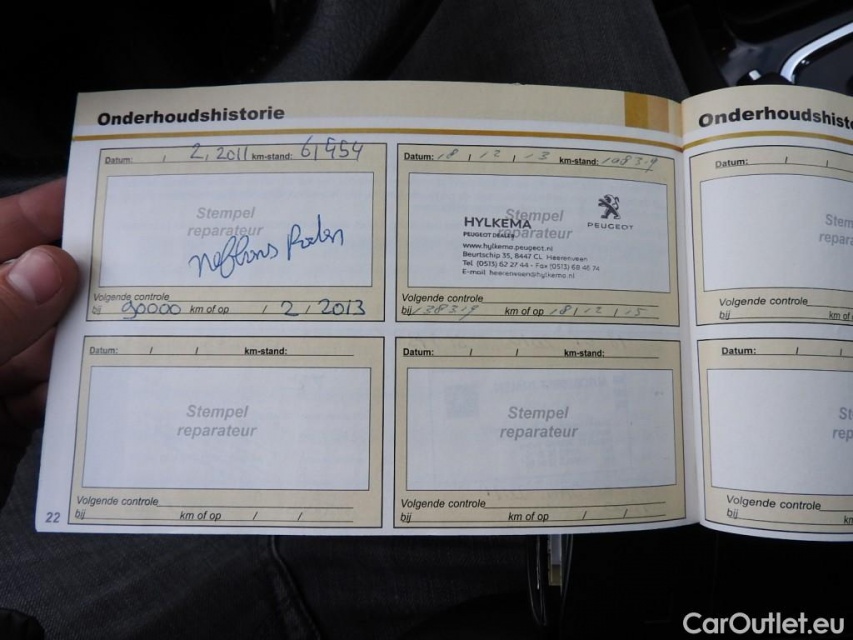 Onderhoudshistorie
Datum: / 2, 2011 km-stand: 61954
Stempel
reparateur
Volgende controle
bij 90000 km of op / 2, 2013
Datum: 18 / 12 / 13 km-stand:
PEUGEOT
HYLKEMA
Stempel
PEUGEOT DEALER
reparateur
www.hylkema.peugeot.nl
Beurtschip 35, 8447 CL Heerenveen
Tel (0513) 62 27 44 - Fax (0513) 68 46 74
E-mail heerenveen@hylkema.nl
Volgende controle
bij km of op 18 / 12 / 15
Datum: / / km-stand:
Stempel
reparateur
Volgende controle
bij km of op / /
Datum: / / km-stand:
Stempel
reparateur
Volgende controle
bij km of op / /
22
Onderhoudshisto
Datum: / /
Stem
repara
Volgende controle
bij km of
Datum: / /
St
rep
Volgende controle
bij k
CarOutlet.eu